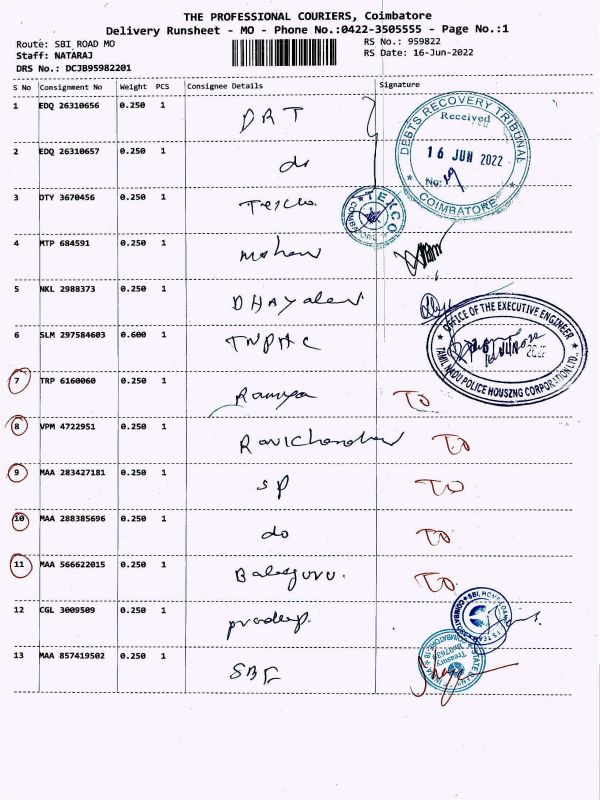 THE PROFESSIONAL COURIERS, Coimbatore
Delivery Runsheet - MO - Phone No.:0422-3505555 - Page No.:1
Route: SBI ROAD MO RS No.: 959822
Staff: NATARAJ RS Date: 16-Jun-2022
DRS No.: DCJB95982201
S No Consignment No Weight PCS Consignee Details Signature
1 EDQ 26310656 0.250 1 DRT
DEBTS RECOVERY TRIBUNAL
Received
16 JUN 2022
No:
COIMBATORE
2 EDQ 26310657 0.250 1 do
3 DTY 3670456 0.250 1
TEXCO
COIMBATORE
4 MTP 684591 0.250 1 Mohan
5 NKL 2988373 0.250 1 DHAyalan
6 SLM 297584603 0.600 1 TNPHC
OFFICE OF THE EXECUTIVE ENGINEER
TAMIL NADU POLICE HOUSZNG CORPORATION LTD.,
7 TRP 6160060 0.250 1 Ramya TO
8 VPM 4722951 0.250 1 RaviChandran TO
9 MAA 283427181 0.250 1 SP TO
10 MAA 288385696 0.250 1 do TO
11 MAA 566622015 0.250 1 Balaguru. TO
12 CGL 3009509 0.250 1 pradeep.
13 MAA 857419502 0.250 1 SBI